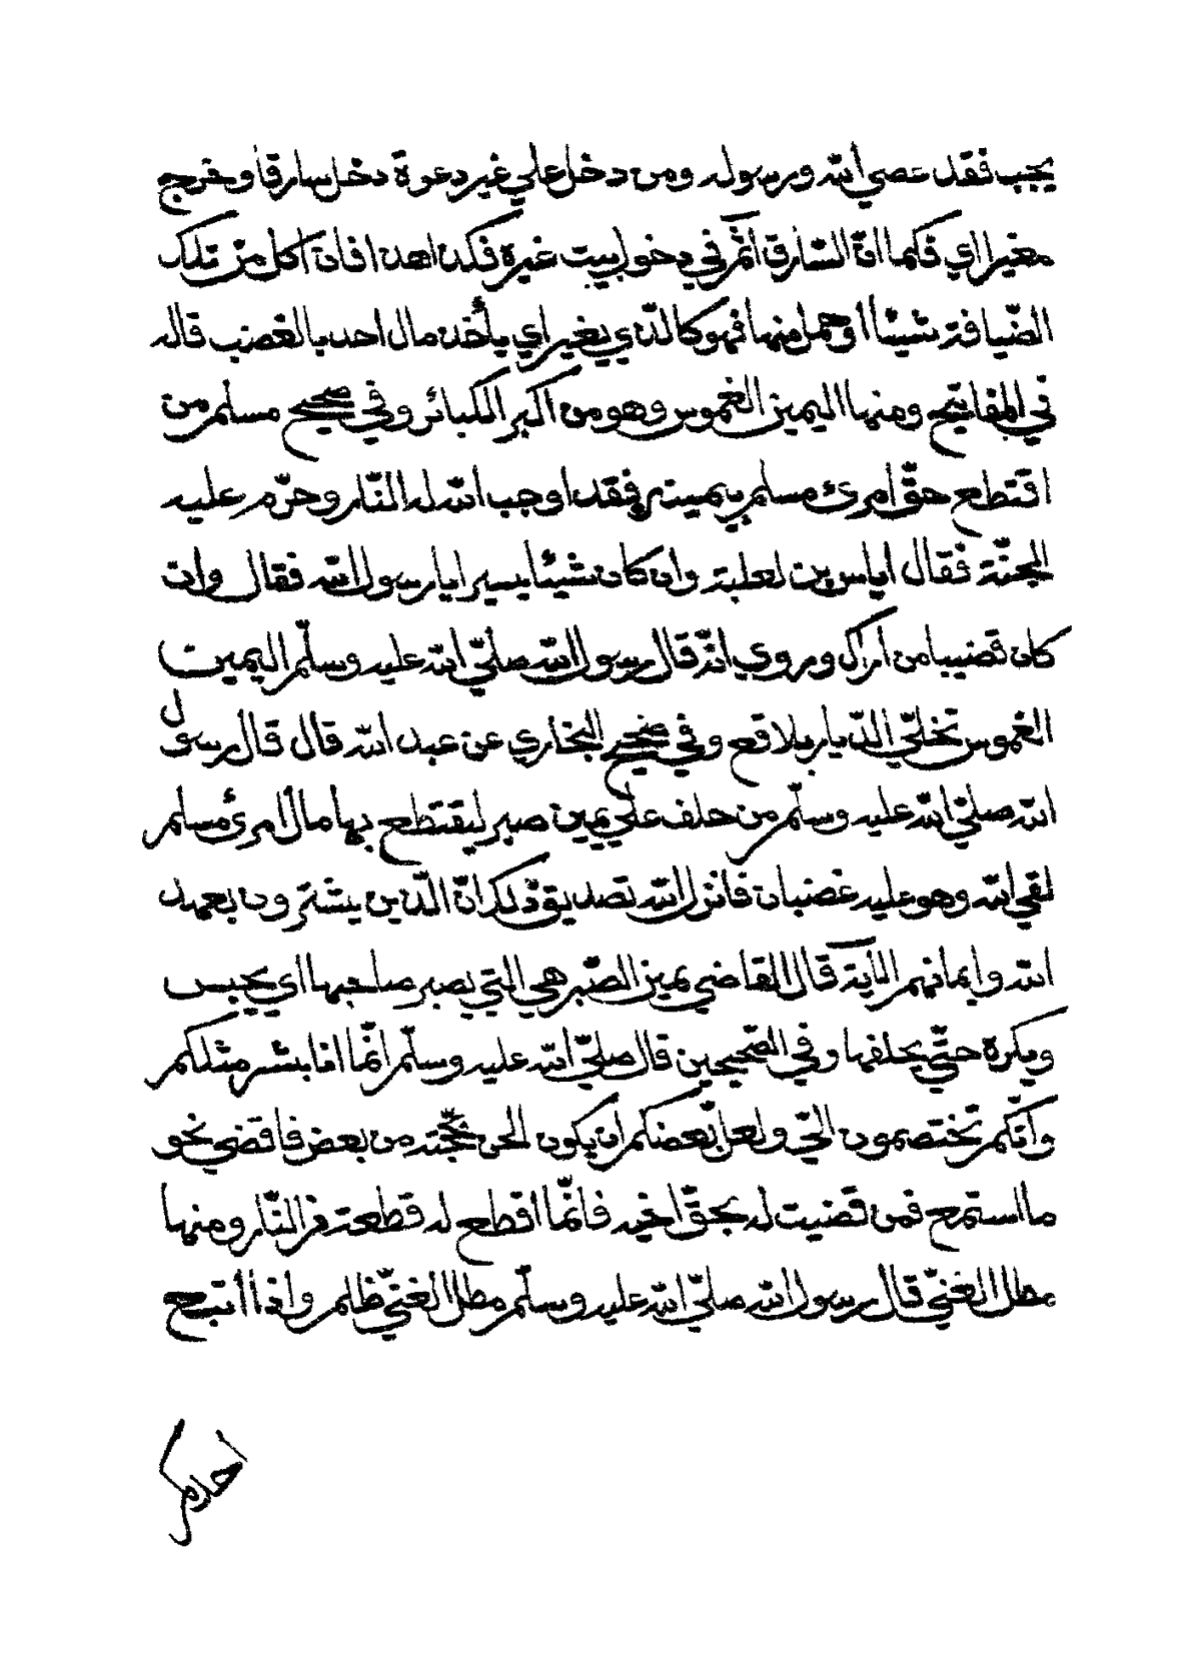 يجب فقد عصي الله ورسوله ومن دخل علي غير دعوة دخل سارقا وخرج
مغيرا اي فكما انّ السّارق آثم في دخول بيت غيره فكذا هذا فان اكل من تلك
الضّيافة شيئا او حمل منها فهو كالذّي يغير اي يأخذ مال احد بالغصب قاله
في المفاتيح ومنها اليمين الغموس وهو من اكبر الكبائر وفي صحيح مسلم من
اقتطع حقّ امرئ مسلم بيمينه فقد اوجب الله له النّار وحرّم عليه
الجنّة فقال اياس بن ثعلبة وان كان شيئا يسيرا يا رسول الله فقال وان
كان قضيبا من اراك وروي انّه قال رسول الله صلّي الله عليه وسلّم اليمين
الغموس تخلّي الدّيار بلاقع وفي صحيح البخاري عن عبد الله قال قال رسول
الله صلّي الله عليه وسلّم من حلف علي يمين صبر ليقتطع بها مال امرئ مسلم
لقي الله وهو عليه غضبان فانزل الله تصديق ذلك انّ الّذين يشترون بعهد
الله وايمانهم الآية قال القاضي يمين الصّبر هي التي يصبر صاحبها اي يحبس
ويكره حتّي يحلفها وفي الصّحيحين قال صلّي الله عليه وسلّم انّما انا بشر مثلكم
وانّكم تختصمون اليّ ولعلّ بعضكم ان يكون الحن بحجّته من بعض فاقضي نحو
ما استمع فمن قضيت له بحقّ اخيه فانّما اقطع له قطعة من النّار ومنها
مطل الغنيّ قال رسول الله صلّي الله عليه وسلّم مطل الغنيّ ظلم واذا اتبع
احدكم